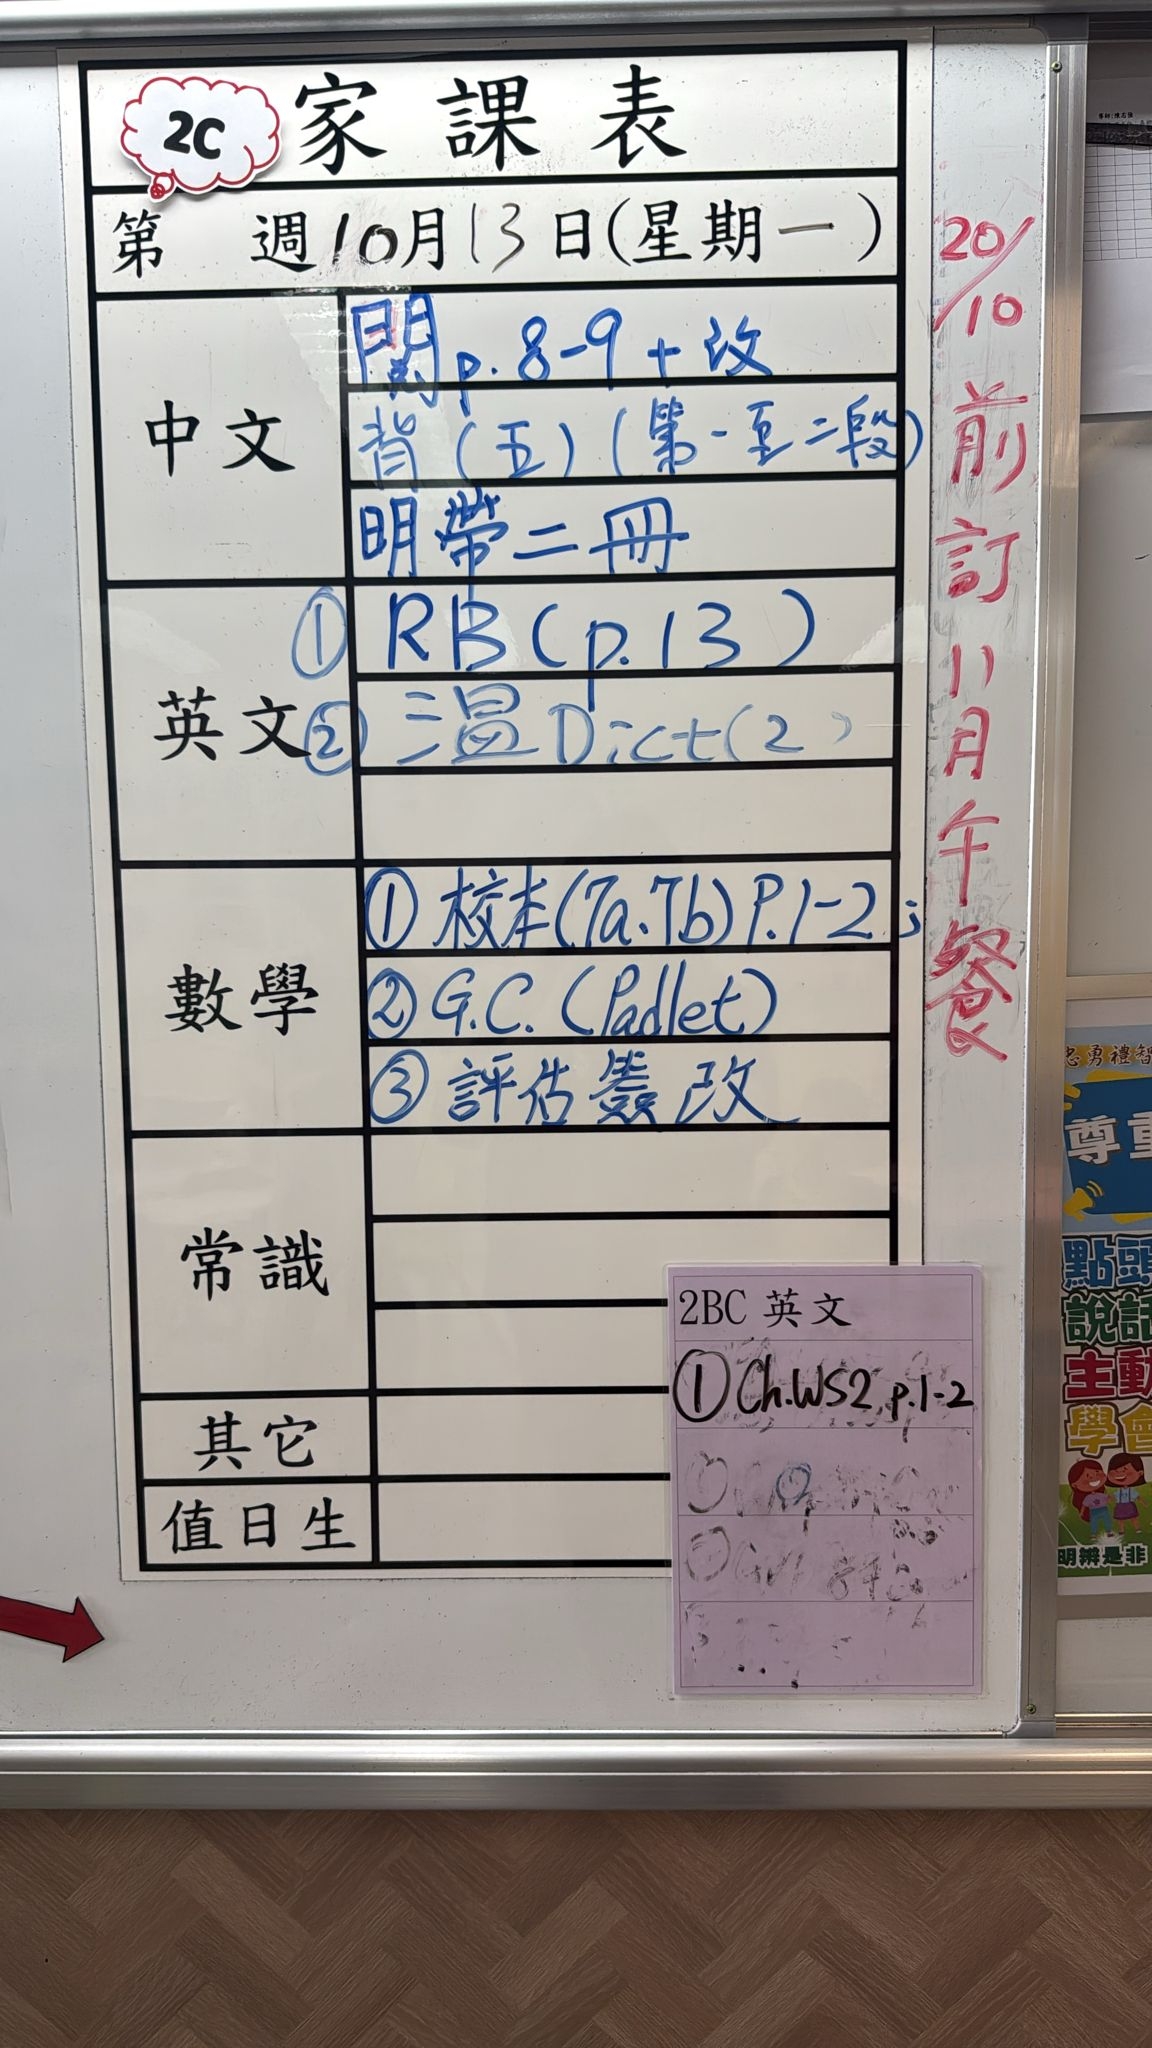 2C 家課表
第 週10月13日(星期一)
中文
閱p.8-9+改
背(五)(第一至二段)
明帶二冊
英文
① RB(p.13)
② 溫Dict(2)
數學
① 校本(7a.7b)P.1-2;
② G.C.(Padlet)
③ 評估簽改
常識
其它
值日生
20/10前訂11月午餐
2BC 英文
① Ch.WS2, p.1-2
忠勇禮智
尊重
點頭
說話
主動
學會
明辨是非